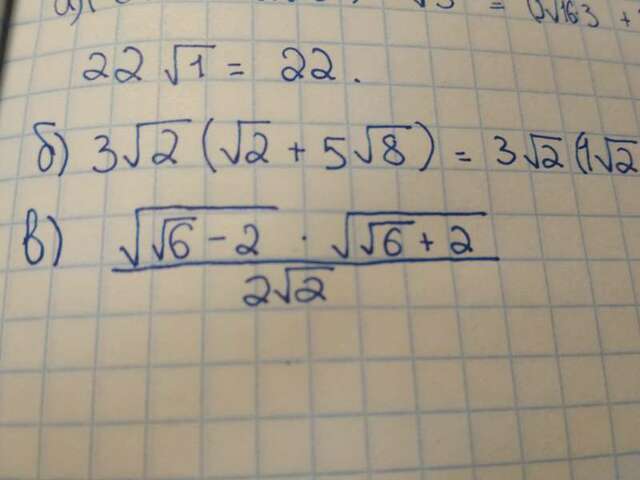 а)
√3 = (√16·3 +
22 √1 = 22.
б) 3√2 (√2 + 5√8) = 3√2 (1√2
в) √(√6 - 2) · √(√6 + 2)
2√2